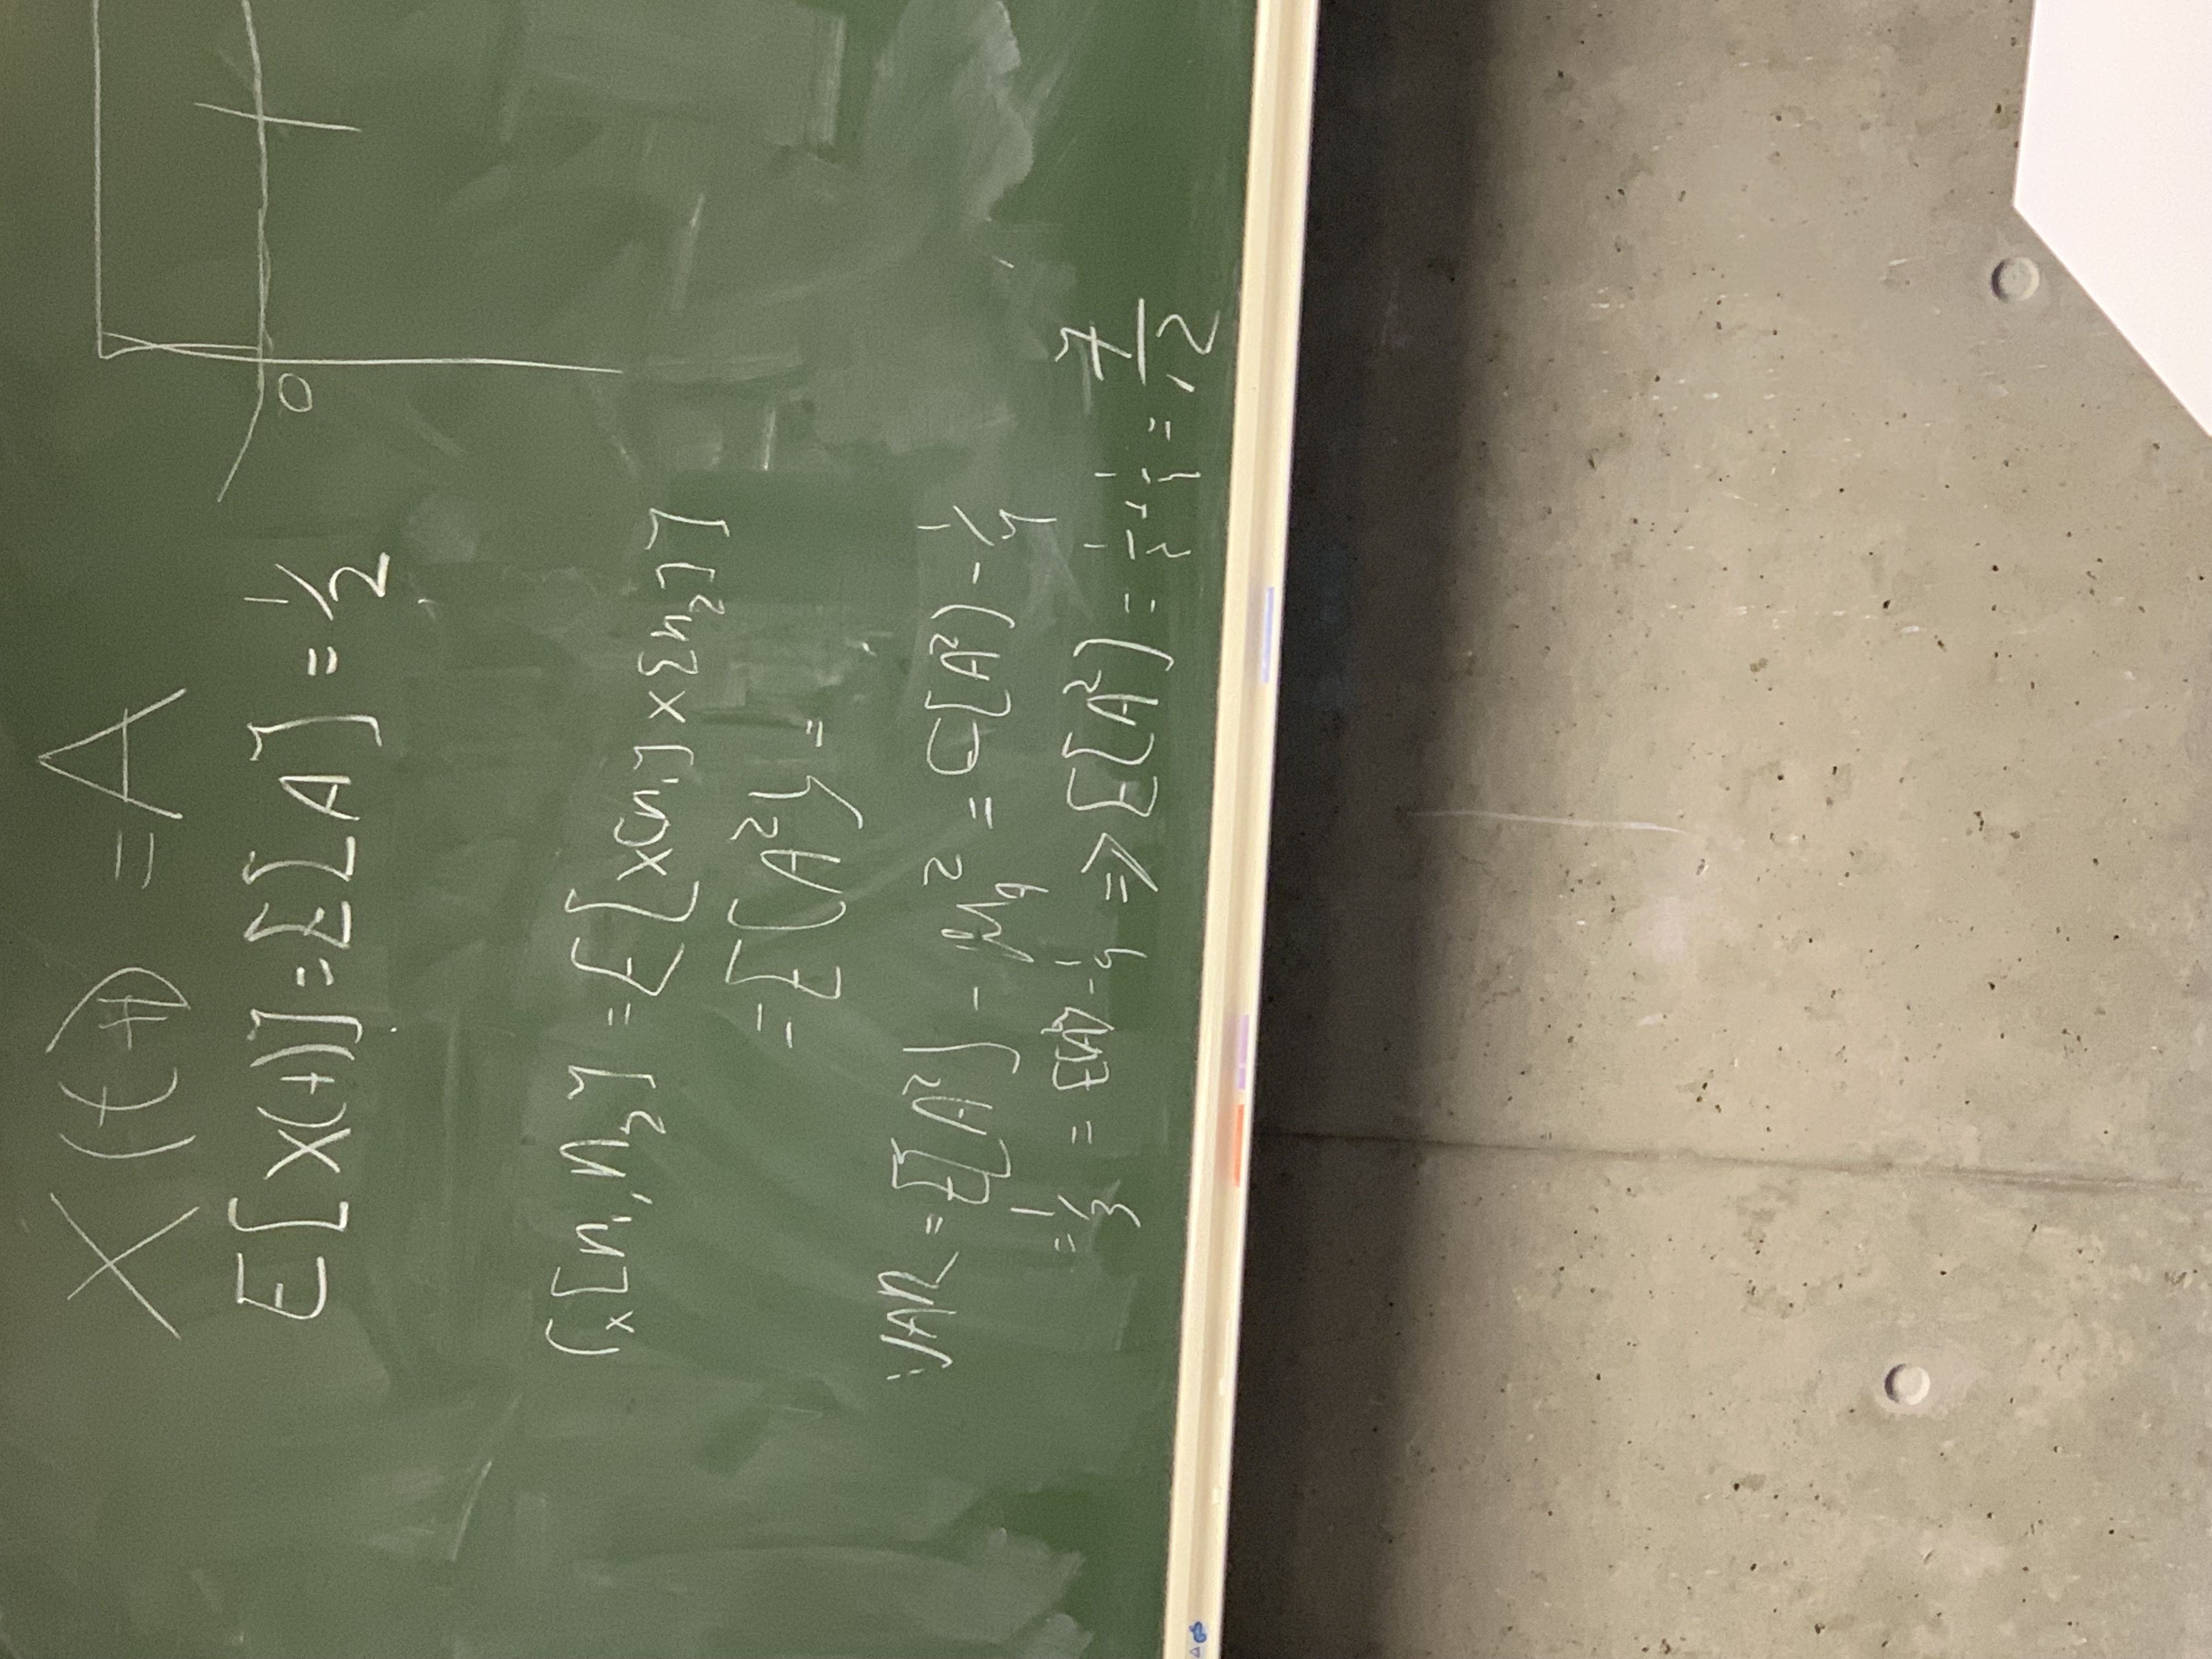 X(t) = A
0
E[X(t)] = E[A] = 1/2
r_x[n_1, n_2] = E[x[n_1] x[n_2]]
= E[A²] =
VAR = E[A²] - μ_A² = E[A²] - 1/4
= 1/3 = E[A²] - 1/4 ⇒ E[A²] = 1/3 + 1/4 = 7/12